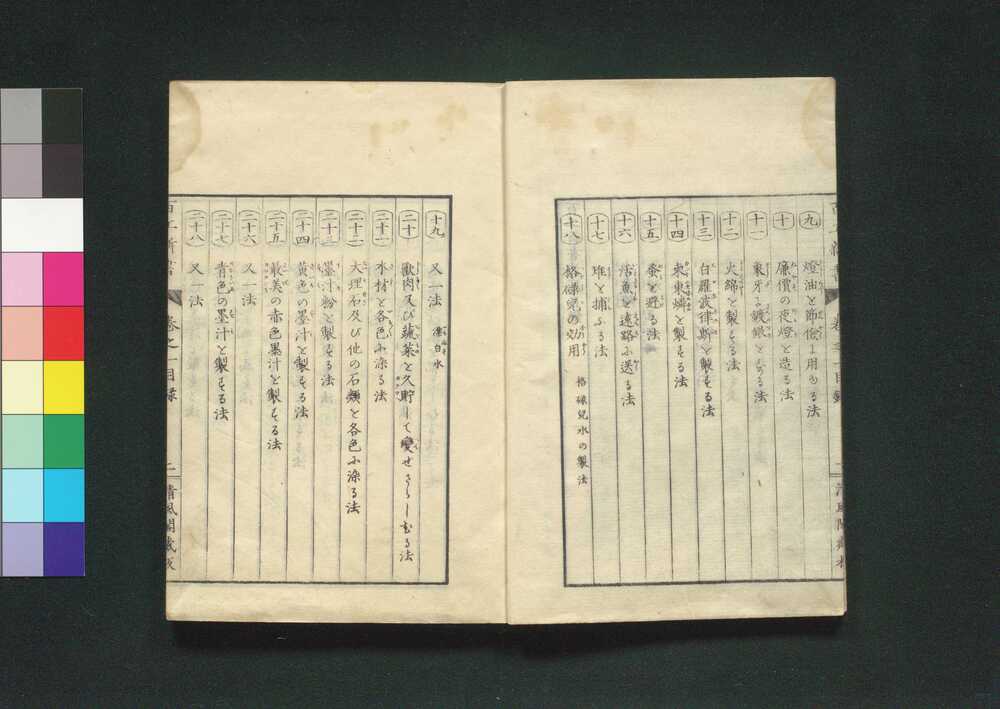 九 燈油を節儉に用ゐる法
十 廉價の夜燈を造る法
十一 象牙に鍍銀をする法
十二 火綿を製する法
十三 白羅瓦律斯を製する法
十四 束束燐を製する法
十五 蚤を避る法
十六 活魚を遠路に送る法
十七 雉を捕ふる法
十八 格碌兒の効用 格碌兒水の製法
十九 又一法 漂白水
二十 獸肉及び蔬菜を久貯して變せさらしむる法
二十一 木材を各色に染る法
二十二 大理石及び他の石類を各色に染る法
二十三 墨汁粉を製する法
二十四 黄色の墨汁を製する法
二十五 最美の赤色墨汁を製する法
二十六 又一法
二十七 青色の墨汁を製する法
二十八 又一法
百工新書 卷之一目録 二 清風閣藏板